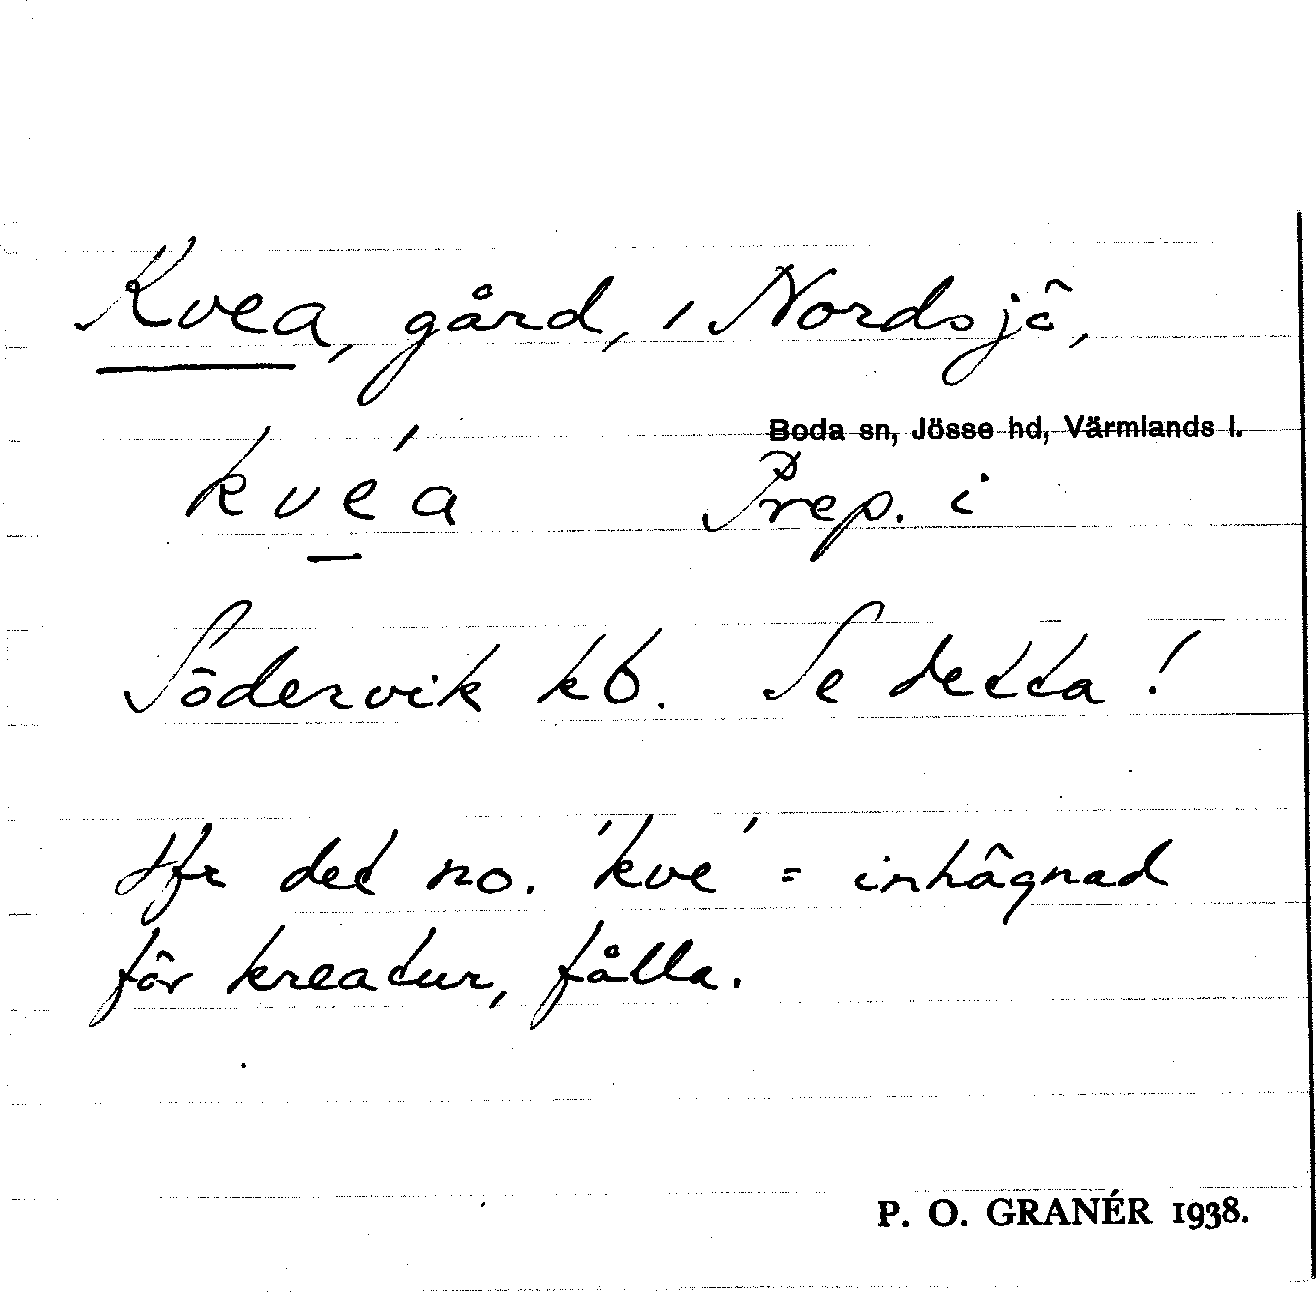 Kvea, gård, i Nordsjö,
Boda sn, Jösse hd, Värmlands l.
kve´a Prep. i
Södervik kb. Se detta!
Jfr det no. 'kve' = inhägnad
för kreatur, fålla.
P. O. GRANÉR 1938.